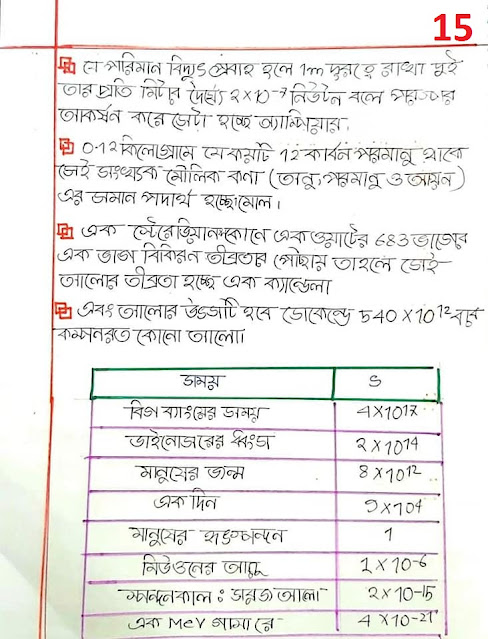 15
যে পরিমান বিদ্যুৎ প্রবাহ হলে 1m দূরত্বে রাখা দুই
তার প্রতি মিটার দৈর্ঘ্যে 2×10⁻⁷ নিউটন বলে পরস্পর
আকর্ষন করে সেটা হচ্ছে অ্যাম্পিয়ার।
0.12 কিলোগ্রামে যে কয়টি 12 কার্বন পরমানু থাকে
সেই সংখ্যক মৌলিক কণা (অনু, পরমানু ও আয়ন)
এর সমান পদার্থ হচ্ছে মোল।
এক স্টেরেডিয়ান কোনে এক ওয়াটের 683 ভাগের
এক ভাগ বিকিরন তীব্রতার পৌছায় তাহলে সেই
আলোর তীব্রতা হচ্ছে এক ক্যান্ডেলা
এবং আলোর উৎসটি হবে সেকেন্ডে 540 × 10¹² বার
কম্পনরত কোনো আলো।
সময় S
বিগ ব্যাংয়ের সময় 4×10¹⁷
ডাইনোসরের ধ্বংস 2×10¹⁴
মানুষের জন্ম 8×10¹²
এক দিন 9×10⁴
মানুষের হৃৎস্পন্দন 1
মিউওনের আয়ু 2×10⁻⁶
স্পন্দনকাল : সবুজ আলো 2×10⁻¹⁵
এক MeV গামা রে 4×10⁻²¹